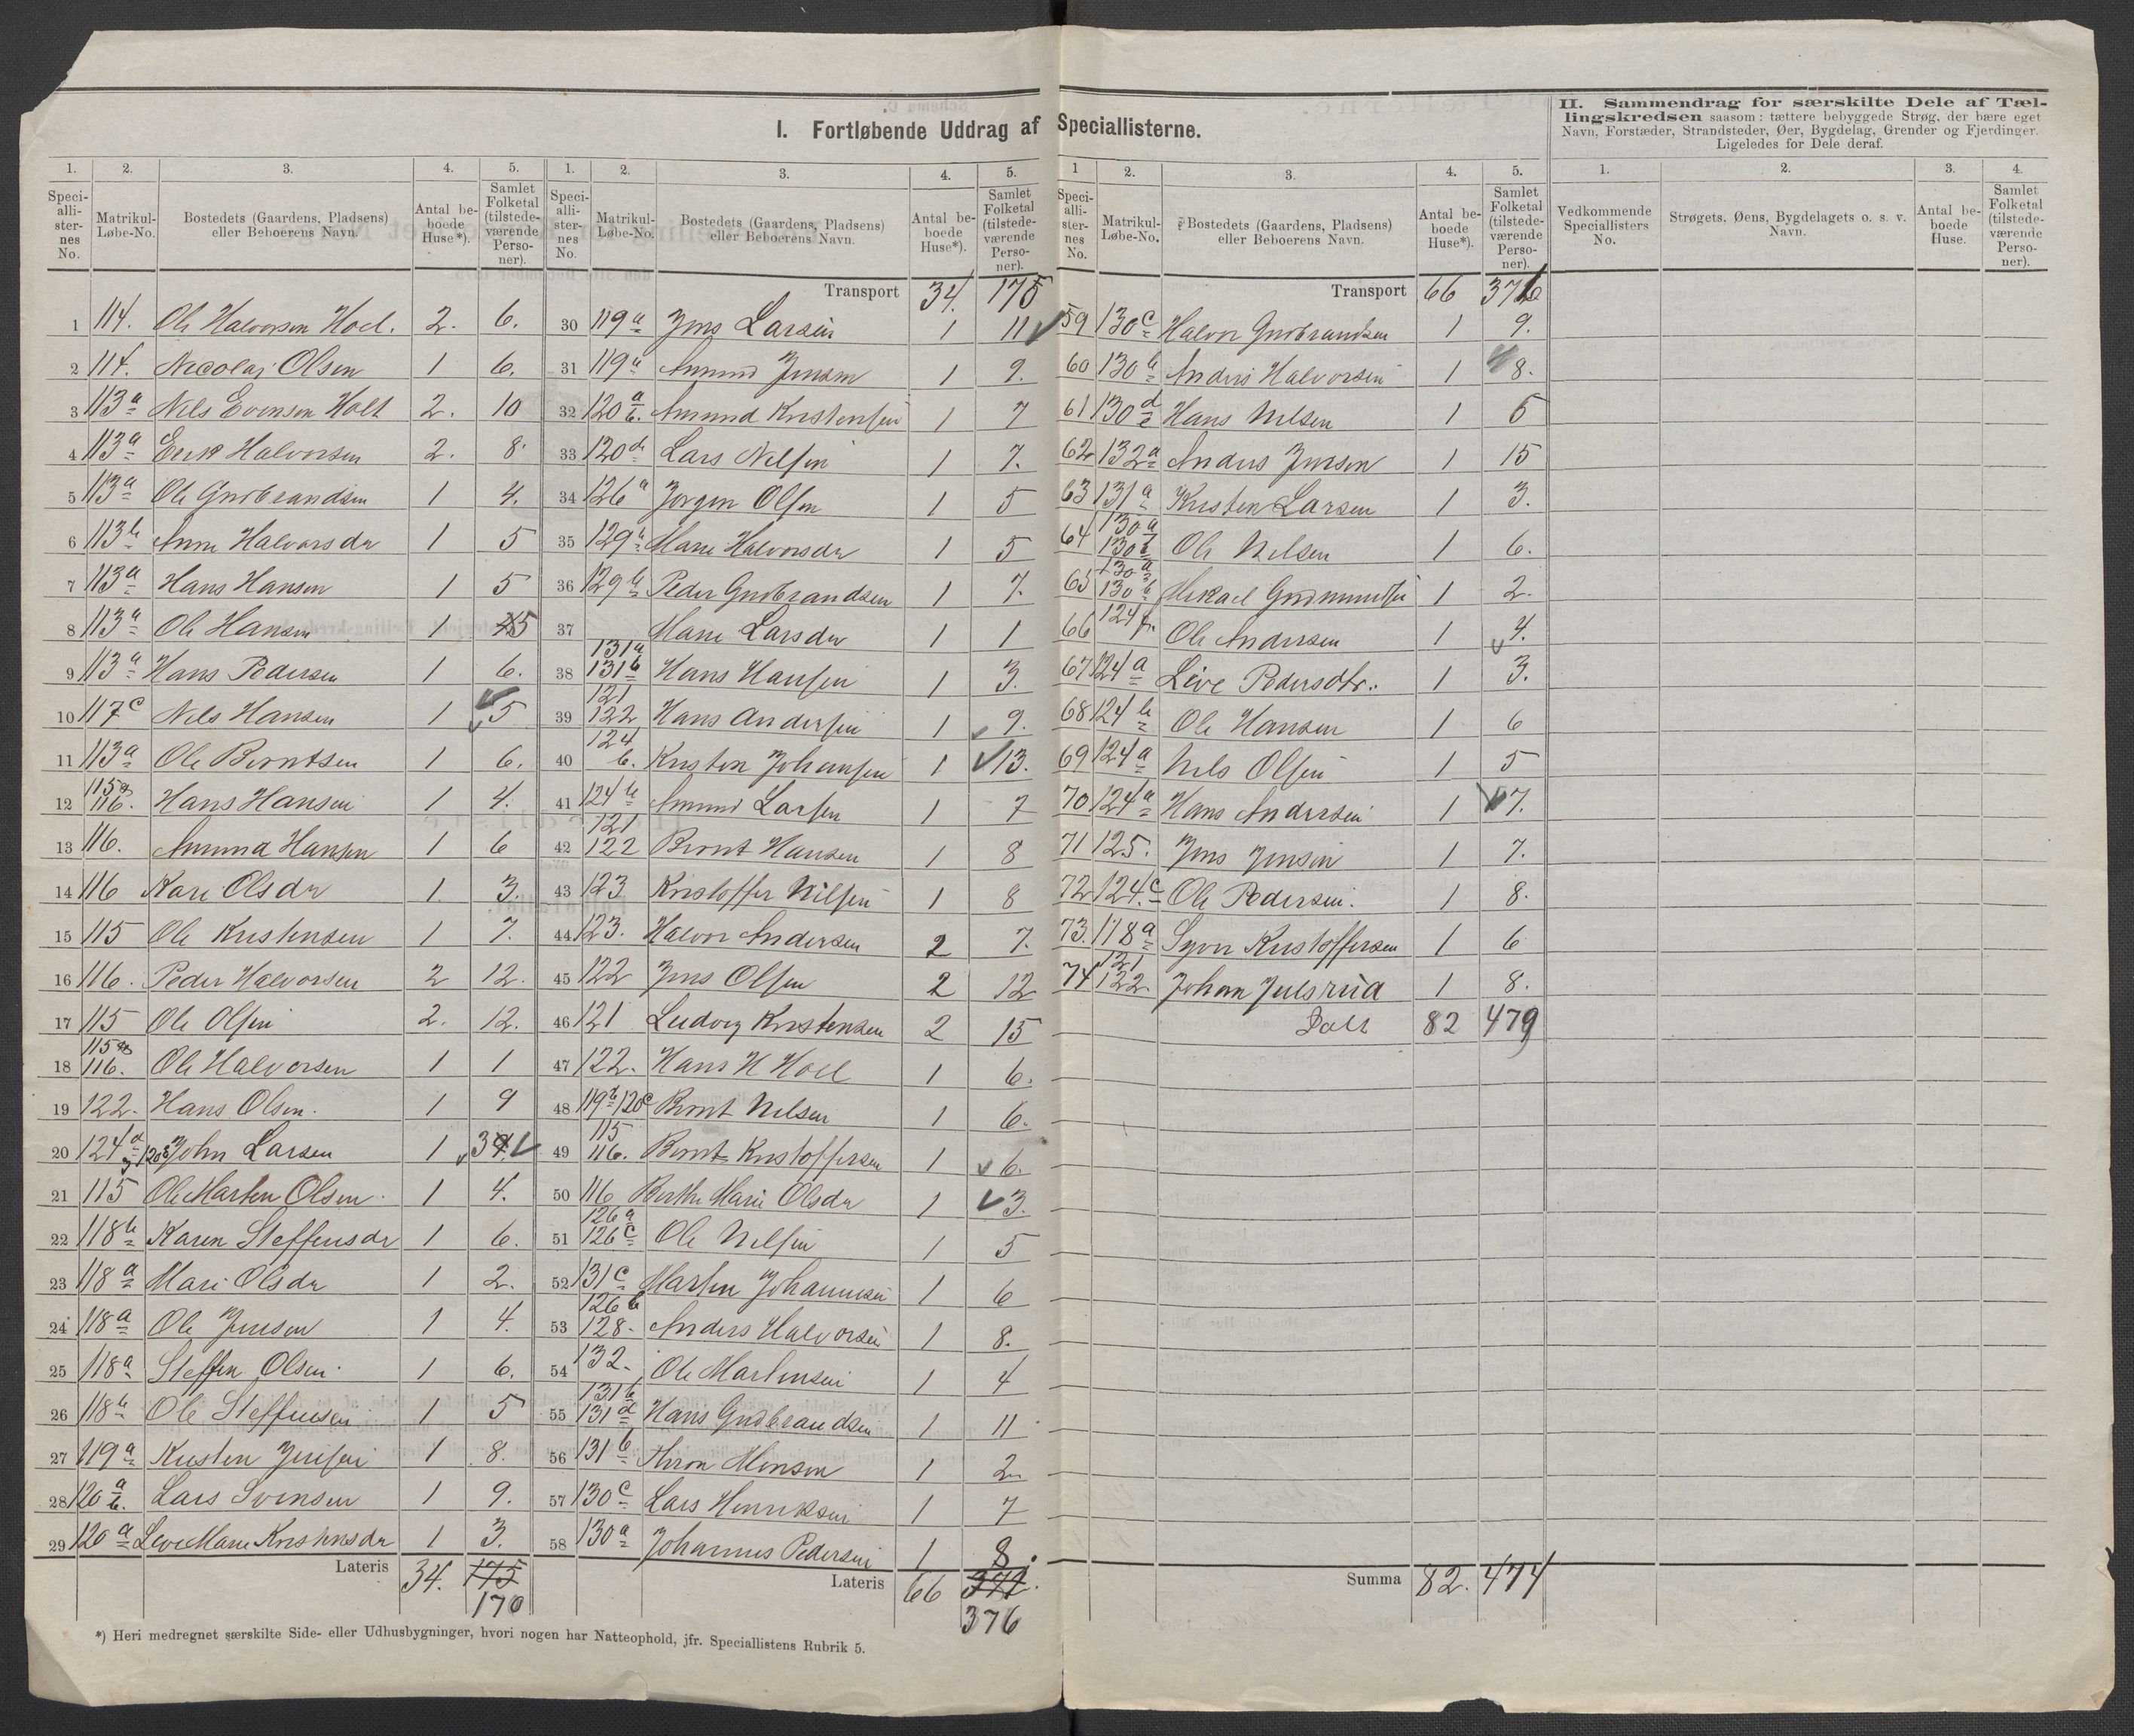 I. Fortløbende Uddrag af Speciallisterne.
1. 2. 3. 4. 5.
Speciallisternes No. Matrikul-Løbe-No. Bostedets (Gaardens, Pladsens) eller Beboerens Navn. Antal beboede Huse*). Samlet Folketal (tilstedeværende Personer).
1 114. Ole Halvorsen Hoel. 2. 6.
2 114. Nicolai Olsen 1 6.
3 113a Nils Evensen Holt 2. 10
4 113a Erik Halvorsen 2. 8.
5 113a Ole Gudbrandsen 1 4.
6 113b Anne Halvorsdr 1 5
7 113a Hans Hansen 1 5
8 113a Ole Hansen 1 5
9 113a Hans Pedersen 1 6.
10 117c Nils Hansen 1 5
11 113a Ole Berntsen 1 6.
12 115a 116. Hans Hansen 1 4.
13 116. Amund Hansen 1 6
14 116 Kari Olsdr 1. 3.
15 115 Ole Kristensen 1 7.
16 116. Peder Halvorsen 2 12.
17 115 Ole Olsen 2. 12.
18 115 116. Ole Halvorsen 1 1
19 122. Hans Olsen. 1 9
20 124a John Larsen 1 3
21 115 Ole Marten Olsen. 1 4.
22 118b Karen Steffensdr 1 6.
23 118a Mari Olsdr 1 2.
24 118a Ole Jensen 1 4.
25 118a Steffen Olsen. 1 6.
26 118b Ole Steffensen 1 5
27 119a Kristen Jensen 1 8.
28 120a b. Lars Svensen 1 9.
29 120a Live Marie Kristensdr 1 3.
Lateris 34. 175
170
1. 2. 3. 4. 5.
Speciallisternes No. Matrikul-Løbe-No. Bostedets (Gaardens, Pladsens) eller Beboerens Navn. Antal beboede Huse*). Samlet Folketal (tilstedeværende Personer).
Transport 34. 175
30 119a Jens Larsen 1 11
31 119a Amund Jensen 1 9.
32 120a b. Amund Kristensen 1 7
33 120d Lars Nilsen 1 7.
34 126a Jørgen Olsen 1 5
35 129a Marie Halvorsdr 1 5
36 129b Peder Gudbrandsen 1 7.
37 Marie Larsdr 1 1
38 131a 131b Hans Hansen 1 3.
39 121 122 Hans Andersen 1 9.
40 124 b. Kristen Johansen 1 13.
41 124b Amund Larsen 1 7
42 121 122 Bernt Hansen 1 8
43 123 Kristoffer Nilsen 1 8
44 123. Halvor Andersen 2 7.
45 122 Jens Olsen 2 12
46 121 Ludvig Kristensen 2 15
47 122. Hans H Hoel 1 6.
48 119b 120c Bernt Nilsen 1 6.
49 115 116. Bernt Kristoffersen 1 6.
50 116 Berthe Marie Olsdr 1 3.
51 126a 126c Ole Nilsen 1 5
52 131c Marten Johannesen 1 6
53 126b 128. Anders Halvorsen 1 8.
54 132. Ole Martinsen 1 4
55 131b 131d Hans Gudbrandsen 1 11
56 131b 1 2
57 130c Lars Henriksen 1 7
58 130a Johannes Pedersen 1 8.
Lateris 66 371.
376
1 2. 3. 4. 5.
Speciallisternes No. Matrikul-Løbe-No. Bostedets (Gaardens, Pladsens) eller Beboerens Navn. Antal beboede Huse*). Samlet Folketal (tilstedeværende Personer).
Transport 66 376
59 130c Halvor Gudbrandsen 1 9.
60 130b Anders Halvorsen 1 8.
61 130d e Hans Nilsen 1 5
62 132a Anders Jensen 1 15
63 131a Kristen Larsen 1 3.
64 130a 130b Ole Nilsen 1 6.
65 130a 130b Mikael Gudmundsen 1 2.
66 124f. Ole Andersen 1 4.
67 124a Live Pedersdtr. 1 3.
68 124b Ole Hansen 1 6
69 124a Nils Olsen 1 5
70 124a Hans Andersen 1 7.
71 125. Jens Jensen 1 7.
72 124c Ole Pedersen. 1 8.
73. 118a Syver Kristoffersen 1 6
74 121 122. Johan Julsrud 1 8.
82 479
Summa 82. 474
II. Sammendrag for særskilte Dele af Tællingskredsen saasom: tættere bebyggede Strøg, der bære eget
Navn, Forstæder, Strandsteder, Øer, Bygdelag, Grender og Fjerdinger.
Ligeledes for Dele deraf.
1. 2. 3. 4.
Vedkommende Speciallisters No. Strøgets, Øens, Bygdelagets o. s. v. Navn. Antal beboede Huse. Samlet Folketal (tilstedeværende Personer).
*) Heri medregnet særskilte Side- eller Udhusbygninger, hvori nogen har Natteophold, jfr. Speciallistens Rubrik 5.